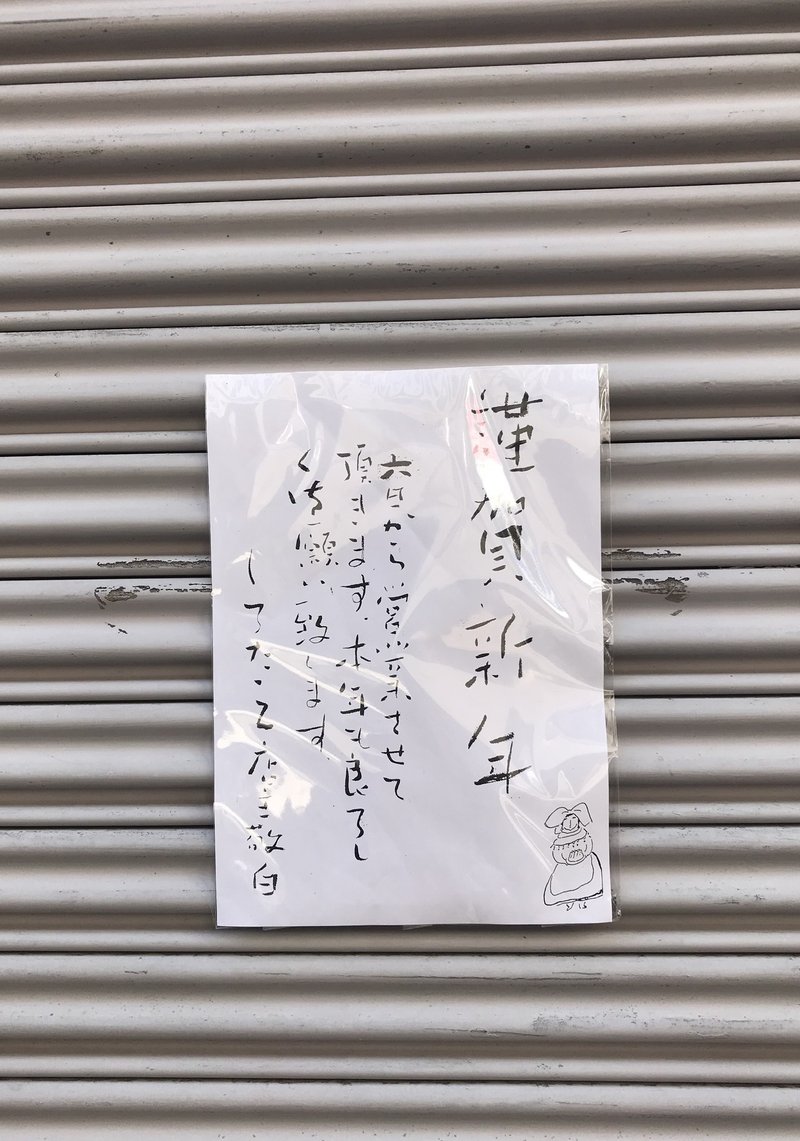 謹賀新年
六日から営業させて
頂きます。本年も良ろし
く御願い致します。
店主敬白